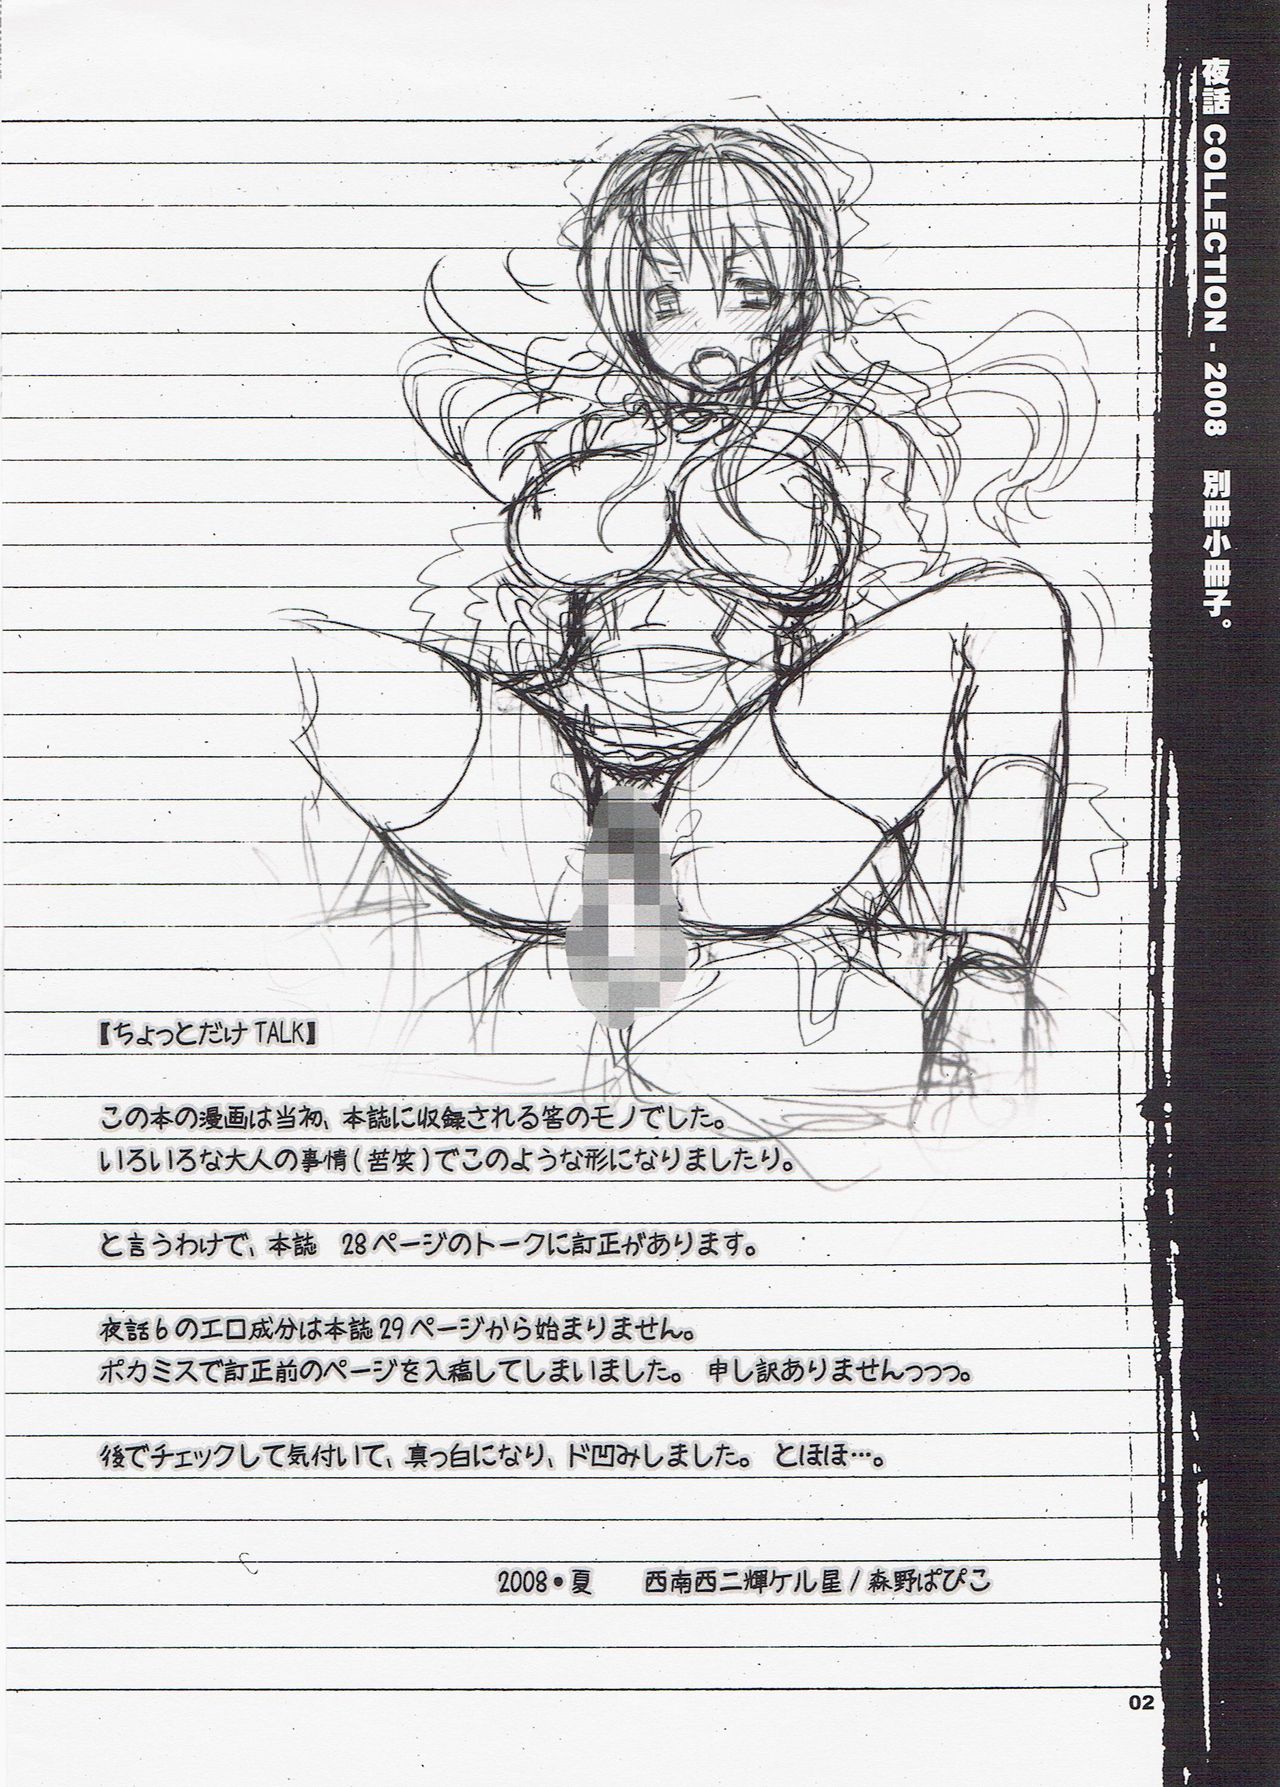 夜話 COLLECTION - 2008 別冊小冊子。
【ちょっとだけ TALK】
この本の漫画は当初、本誌に収録される筈のモノでした。
いろいろな大人の事情(苦笑)でこのような形になりましたり。
と言うわけで、本誌 28ページのトークに訂正があります。
夜話6のエロ成分は本誌29ページから始まりません。
ポカミスで訂正前のページを入稿してしまいました。 申し訳ありませんっっっ。
後でチェックして気付いて、真っ白になり、ド凹みしました。 とほほ…。
2008・夏 西南西二輝ケル星/森野ぱぴこ
02